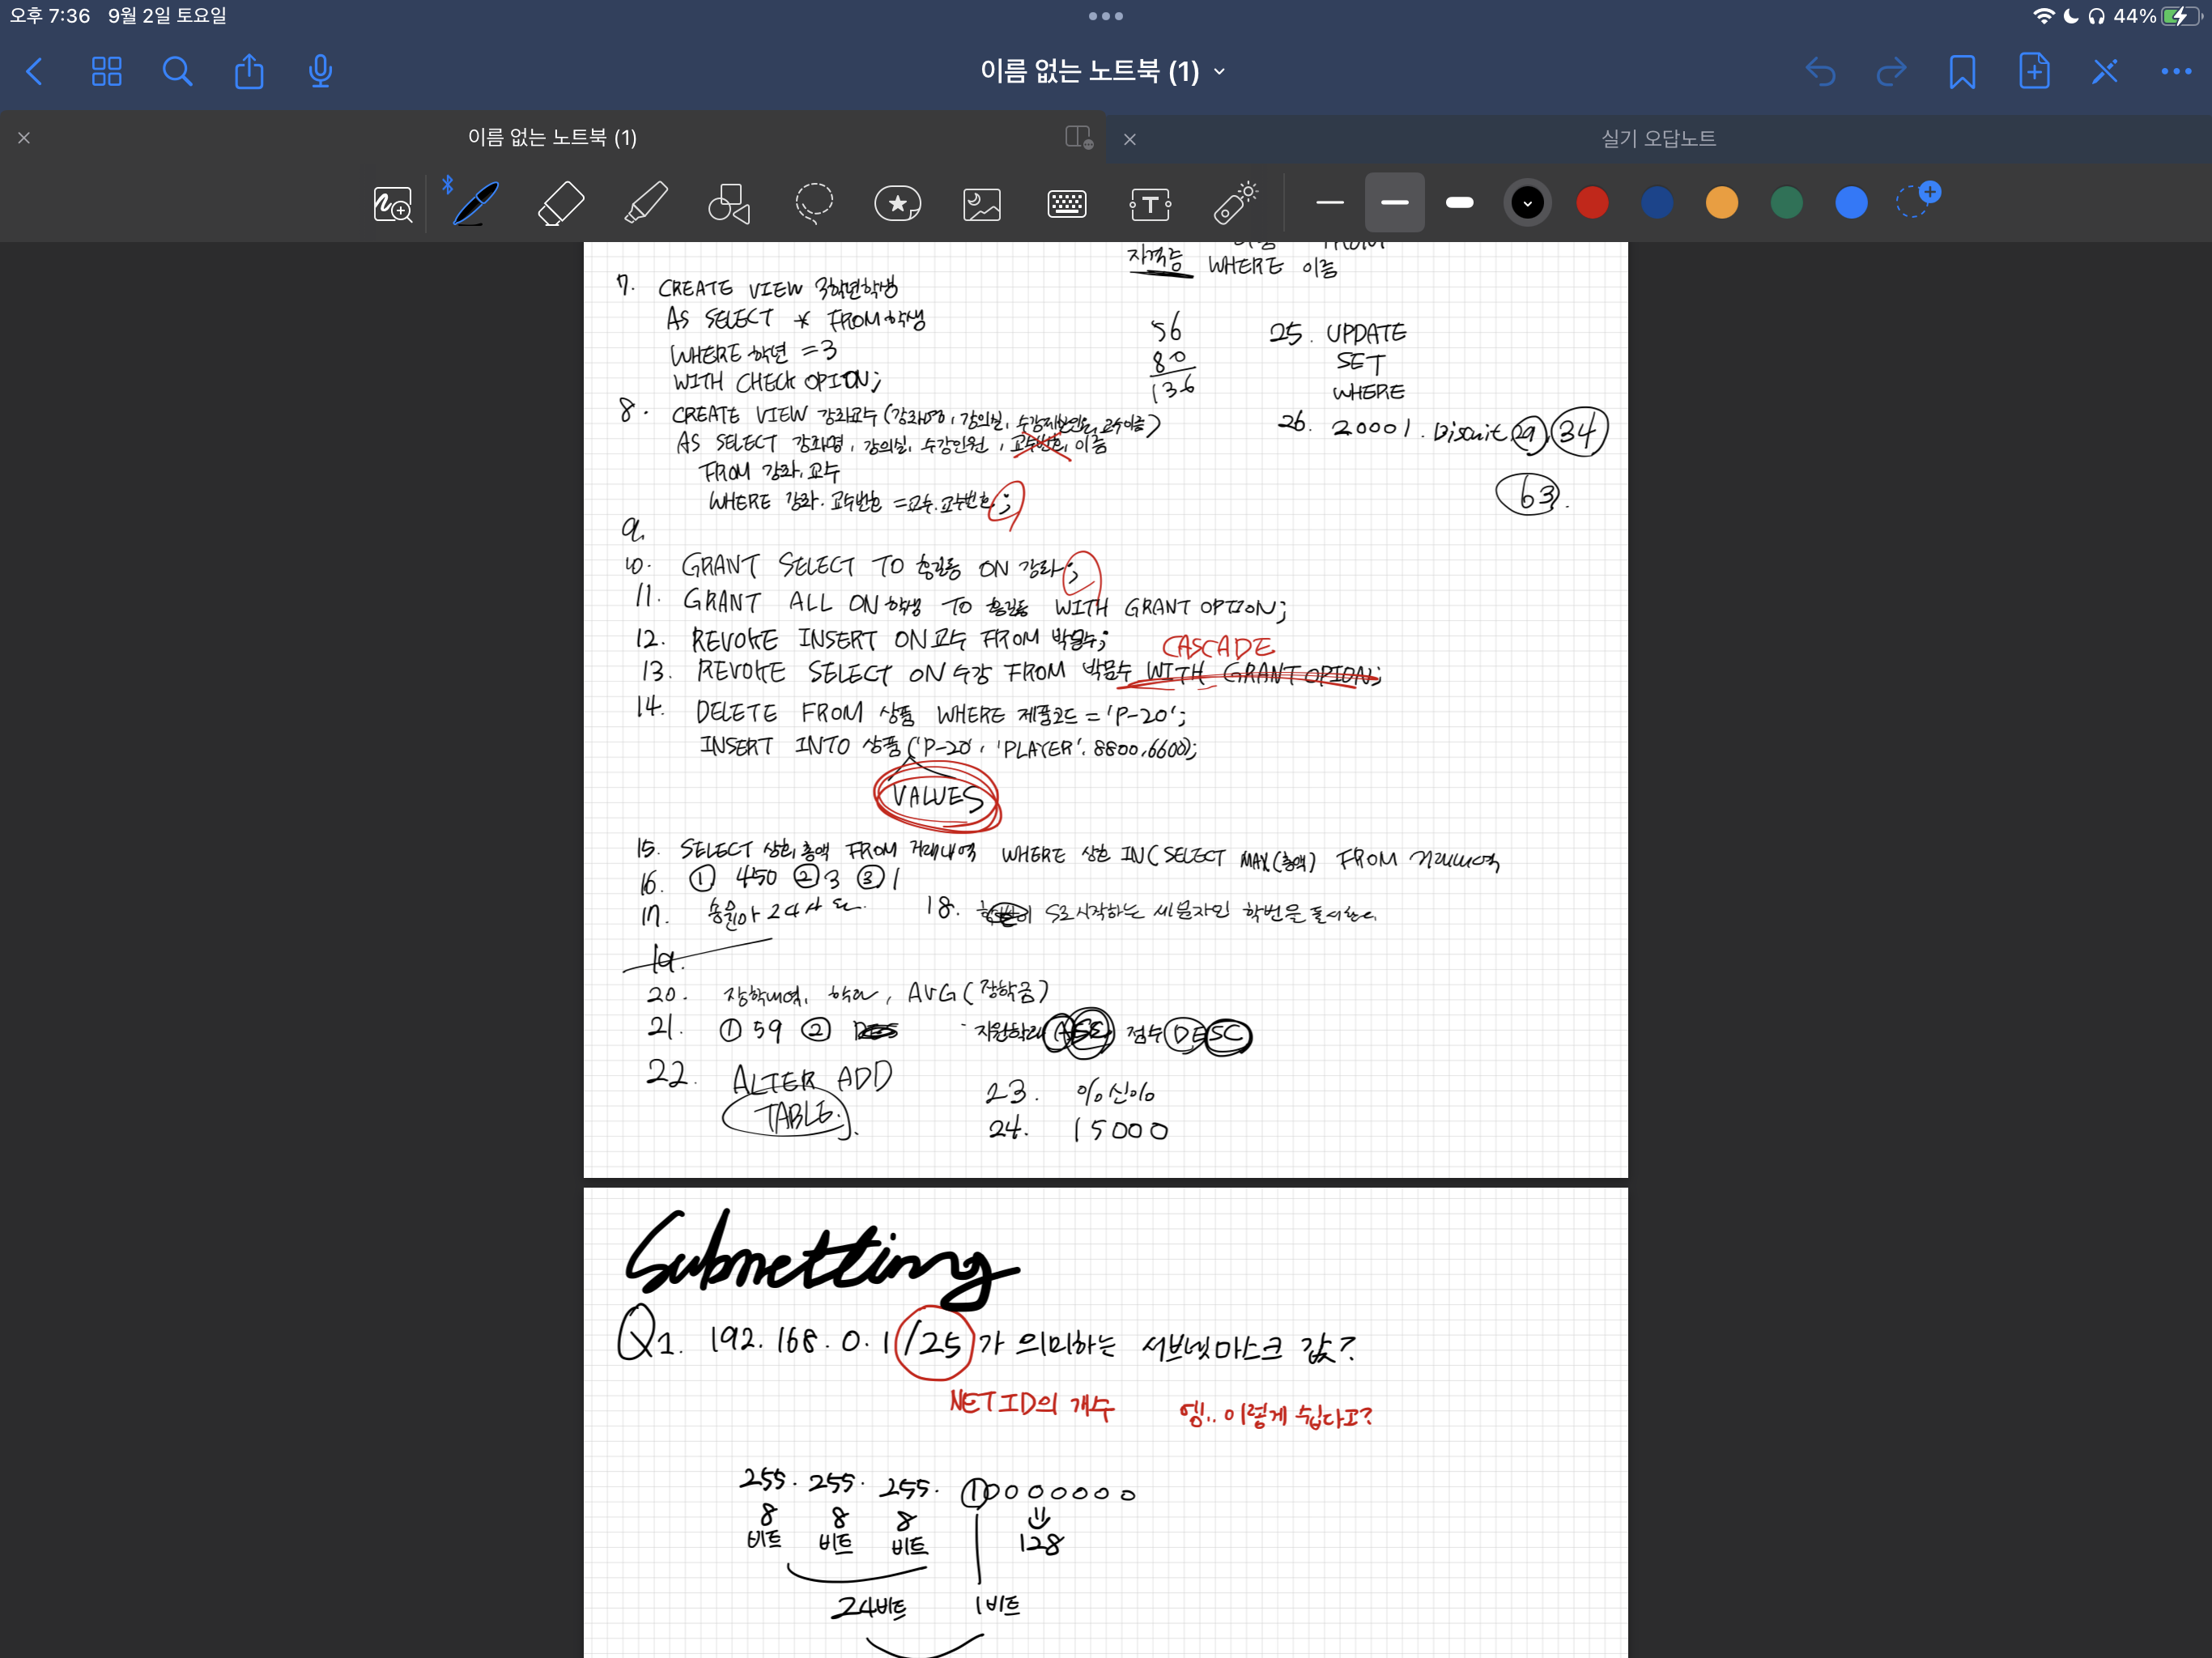 오후 7:36 9월 2일 토요일
44%
이름 없는 노트북 (1)
이름 없는 노트북 (1)
실기 오답노트
자격증 WHERE 이름
7. CREATE VIEW 3학년학생
AS SELECT * FROM 학생
WHERE 학년 = 3
WITH CHECK OPTION;
56
80
136
25. UPDATE
SET
WHERE
8. CREATE VIEW 강좌교수 (강좌명, 강의실, 수강제한인원, 교수이름)
AS SELECT 강좌명, 강의실, 수강인원, 교수번호, 이름
FROM 강좌, 교수
WHERE 강좌.교수번호 = 교수.교수번호;
26. 20001. Biscuit 29, 34
63.
9.
10. GRANT SELECT TO 홍길동 ON 강좌;
11. GRANT ALL ON 학생 TO 홍길동 WITH GRANT OPTION;
12. REVOKE INSERT ON 교수 FROM 박문수;
CASCADE
13. REVOKE SELECT ON 수강 FROM 박문수 WITH GRANT OPTION;
14. DELETE FROM 상품 WHERE 제품코드 = 'P-20';
INSERT INTO 상품 ('P-20', 'PLAYER', 8800, 6600);
VALUES
15. SELECT 상호, 총액 FROM 거래내역 WHERE 상호 IN (SELECT MAX(총액) FROM 거래내역
16. ① 450 ② 3 ③ 1
17. 송윤아 24 사
18. S로 시작하는 세글자인 학번을 표시한다.
19.
20. 장학내역, 학과, AVG(장학금)
21. ① 59 ② 지원학과 ASC, 점수 DESC
22. ALTER ADD
TABLE.
23. %신%
24. 15000
Subnetting
Q1. 192.168.0.1/25 가 의미하는 서브넷마스크 값?
NET ID의 개수 엥.. 이렇게 쉽다고?
255. 255. 255. 10000000
8 8 8
비트 비트 비트 128
24비트 1비트